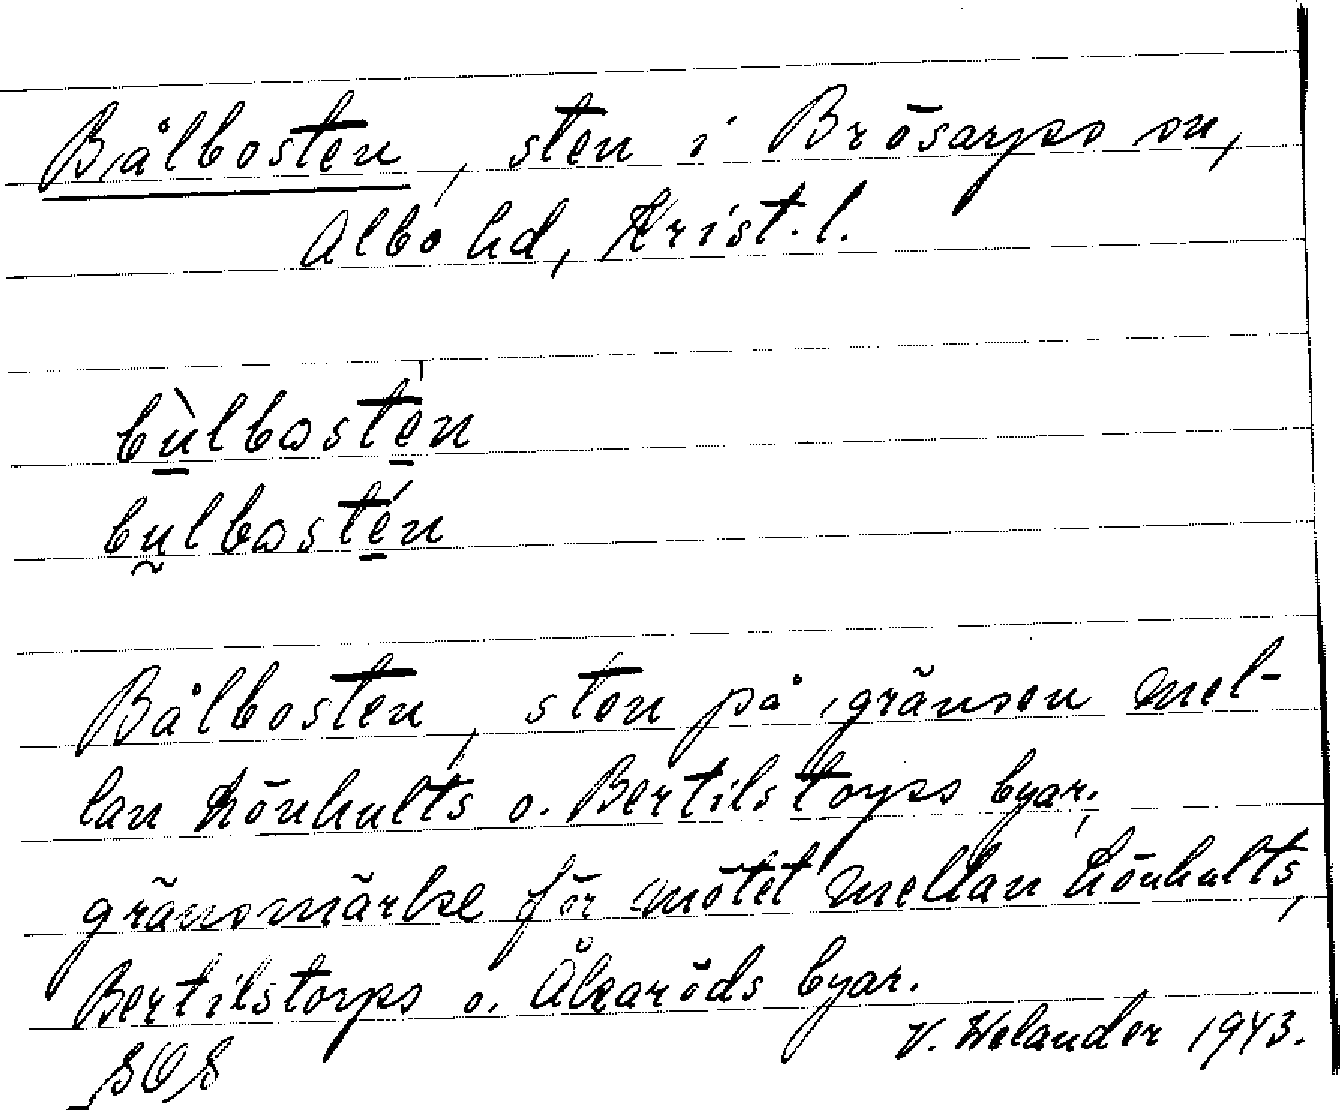 Bålbosten, sten i Brösarps sn,
Albo hd, Krist. l.
bùlbosten
bulbostén
Bålbosten, sten på gränsen mel-
lan Lönhults o. Bertilstorps byar.
gränsmärke för mötet mellan Lönhults,
Bertilstorps o. Åkaröds byar.
V. Welander 1943.